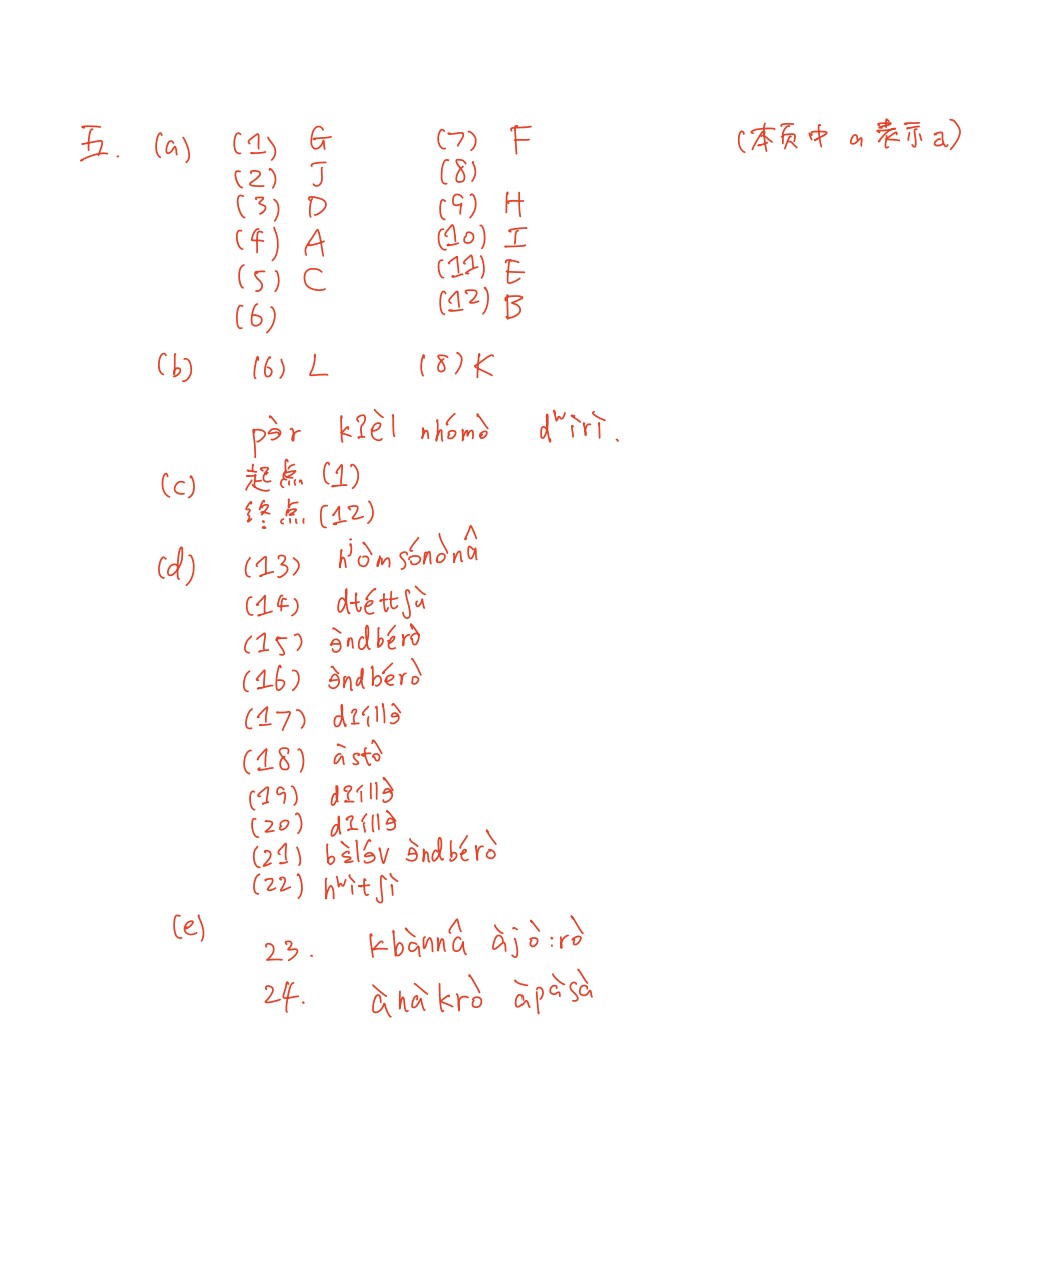 五. (a) (1) G (7) F (本页中 ɑ 表示 a)
(2) J (8)
(3) D (9) H
(4) A (10) I
(5) C (11) E
(6) (12) B
(b) (6) L (8) K
pə̀r kʔèl nhómò dʷìrì.
(c) 起点 (1)
终点 (12)
(d) (13) hʲòmsónònɑ̂
(14) dtéttʃɑ̀
(15) ə̀ndbérò
(16) ə̀ndbérò
(17) dʔíllə̀
(18) ɑ̀stò
(19) dʔíllə̀
(20) dʔíllə̀
(21) bə̀lə́v ə̀ndbérò
(22) hʷìtʃì
(e)
23. kbɑ̀nnɑ̂ ɑ̀jò:rò
24. ɑ̀hɑ̀krò ɑ̀pɑ̀sɑ̀